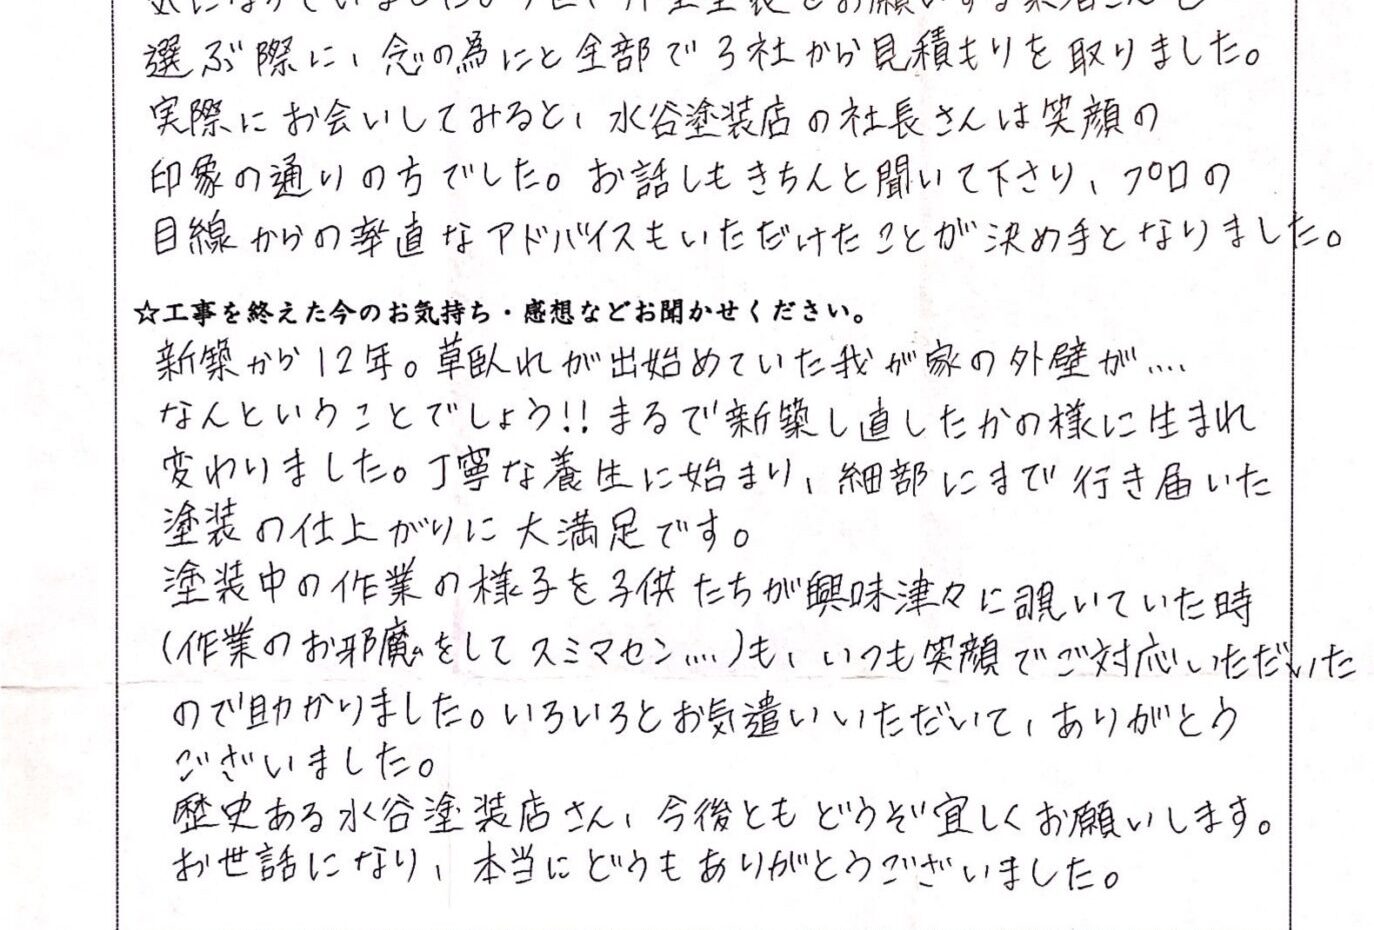 気になっていました。今回、外壁塗装をお願いする業者さんを
選ぶ際に、念の為にと全部で3社から見積もりを取りました。
実際にお会いしてみると、水谷塗装店の社長さんは笑顔の
印象の通りの方でした。お話しもきちんと聞いて下さり、プロの
目線からの率直なアドバイスもいただけたことが決め手となりました。
☆工事を終えた今のお気持ち・感想などお聞かせください。
新築から12年。草臥れが出始めていた我が家の外壁が....
なんということでしょう!!まるで新築し直したかの様に生まれ
変わりました。丁寧な養生に始まり、細部にまで行き届いた
塗装の仕上がりに大満足です。
塗装中の作業の様子を子供たちが興味津々に覗いていた時
(作業のお邪魔をしてスミマセン....)も、いつも笑顔でご対応いただいた
ので助かりました。いろいろとお気遣いいただいて、ありがとう
ございました。
歴史ある水谷塗装店さん、今後ともどうぞ宜しくお願いします。
お世話になり、本当にどうもありがとうございました。